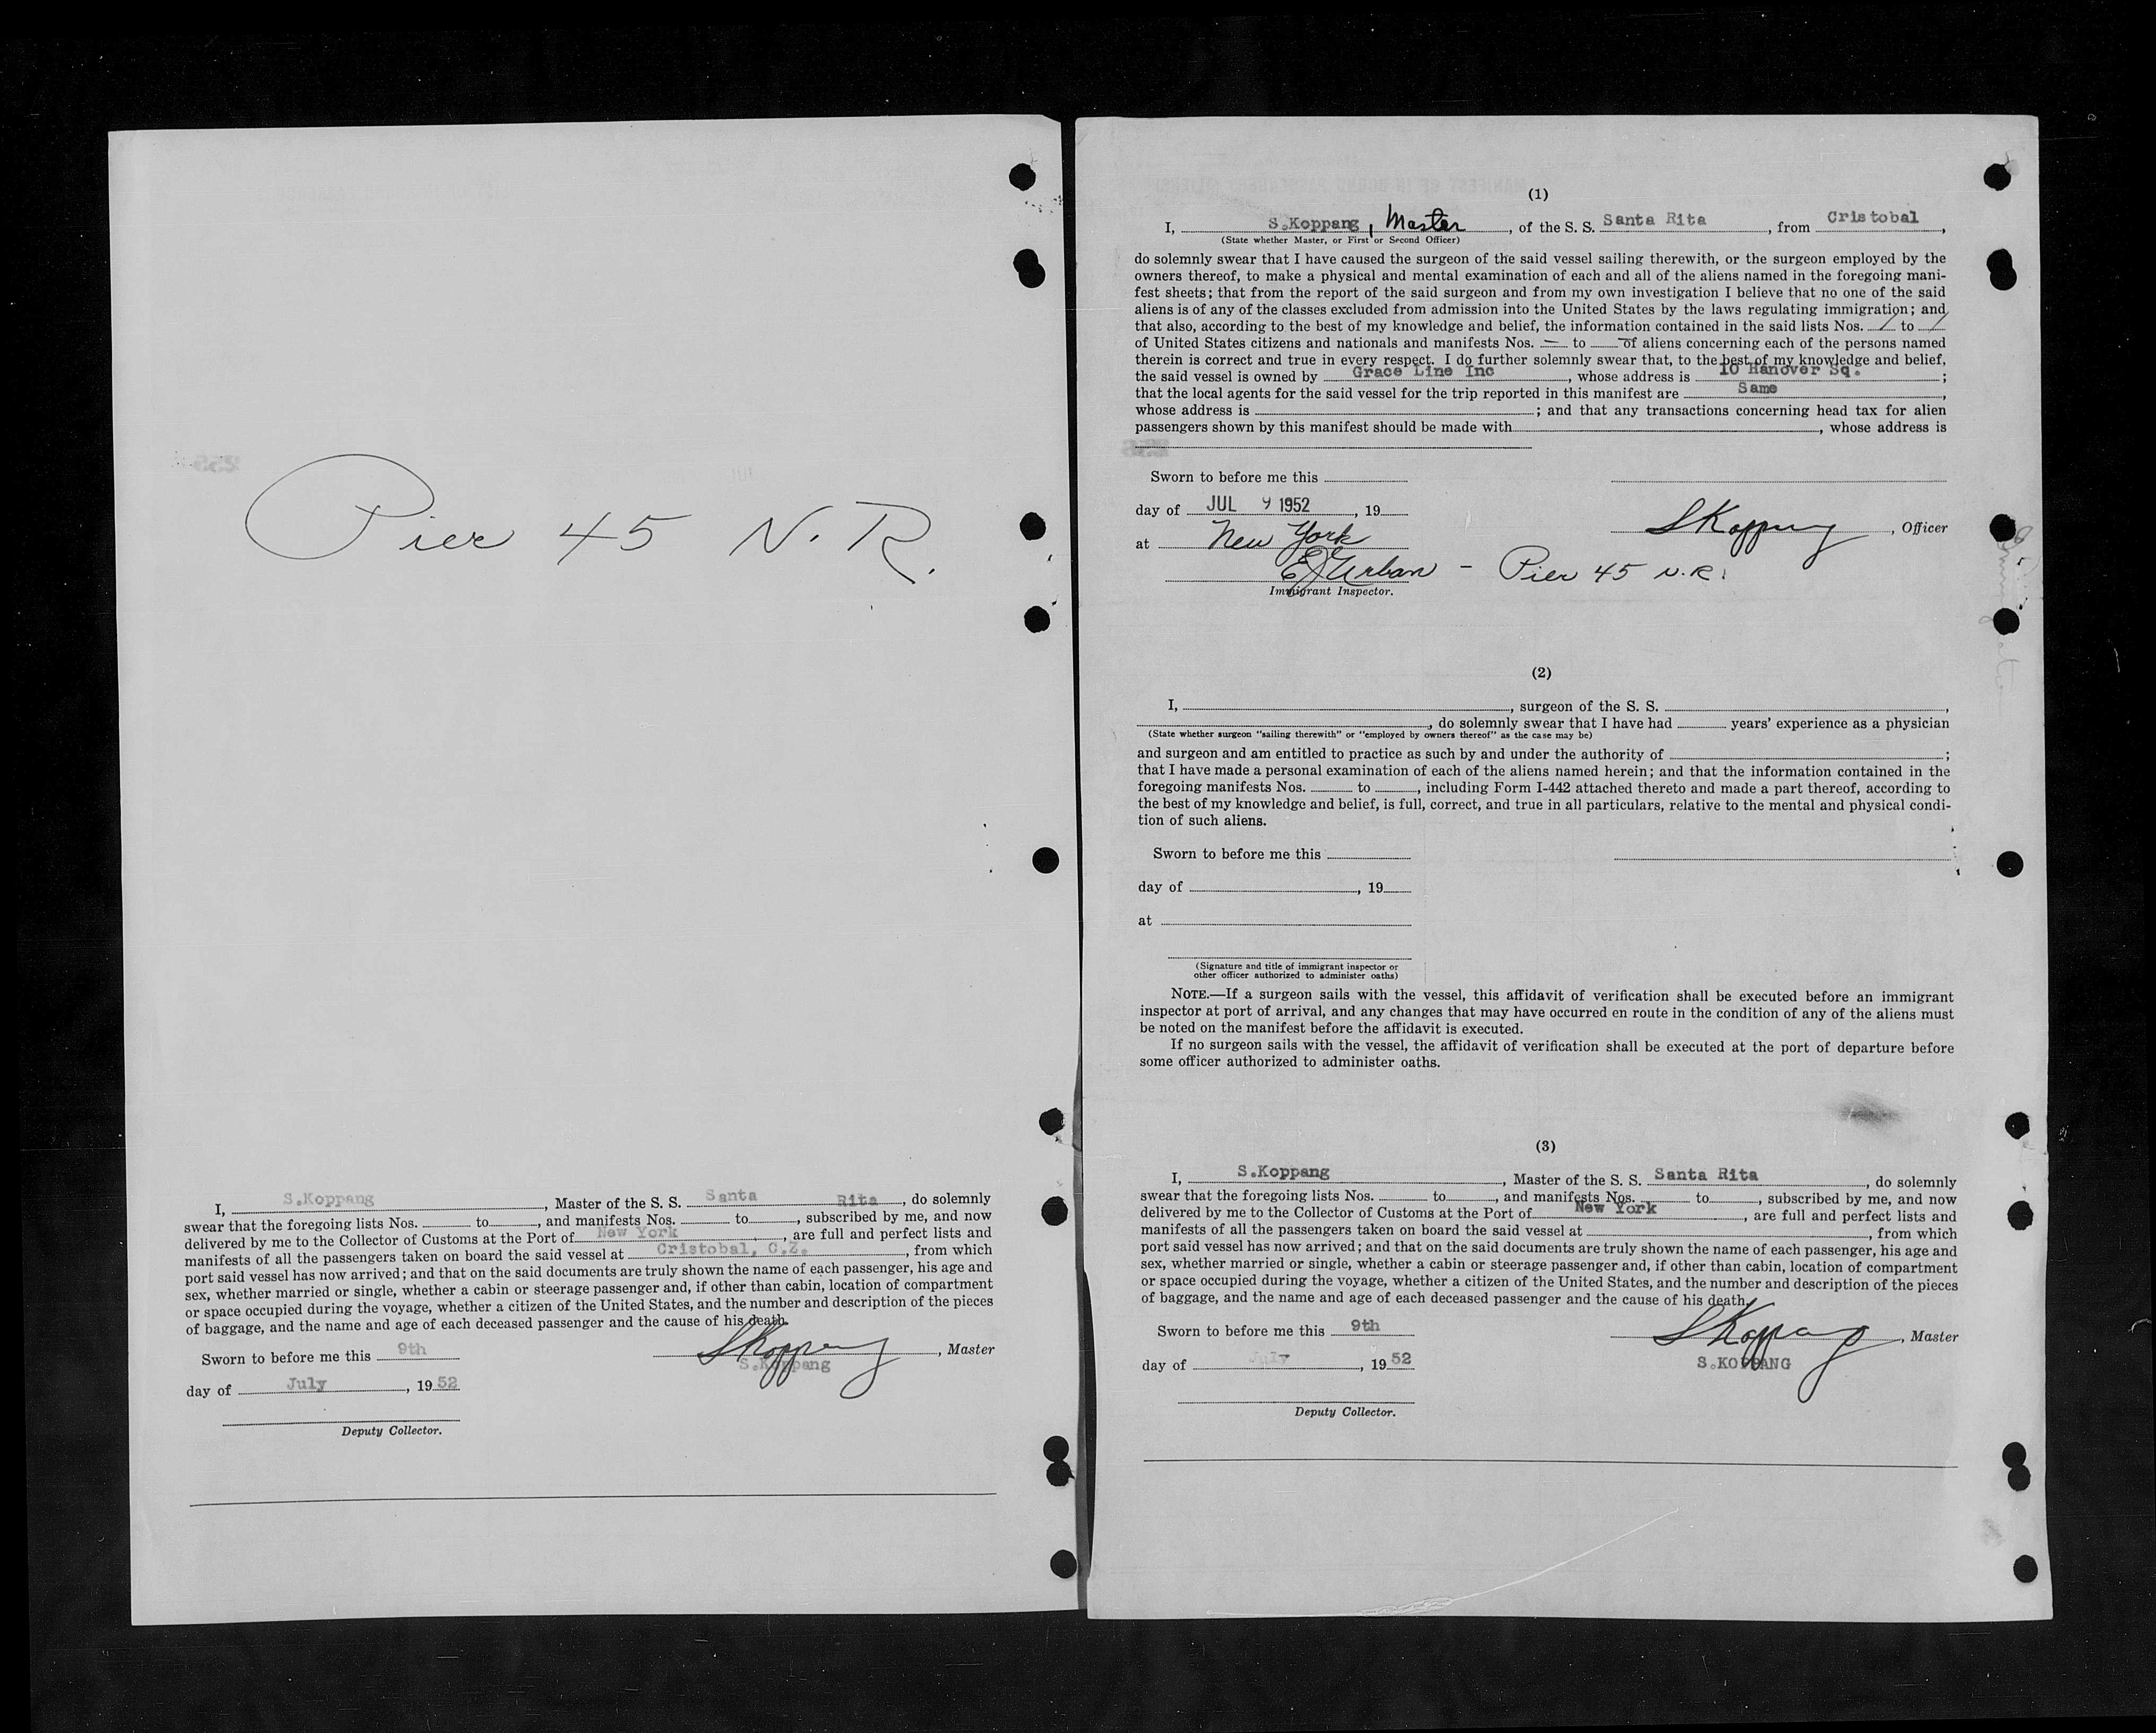 Pier 45 N. R.
I, S.Koppang, Master of the S. S. Santa Rita, do solemnly
swear that the foregoing lists Nos. to, and manifests Nos. to, subscribed by me, and now
delivered by me to the Collector of Customs at the Port of New York, are full and perfect lists and
manifests of all the passengers taken on board the said vessel at Cristobal, C.Z., from which
port said vessel has now arrived; and that on the said documents are truly shown the name of each passenger, his age and
sex, whether married or single, whether a cabin or steerage passenger and, if other than cabin, location of compartment
or space occupied during the voyage, whether a citizen of the United States, and the number and description of the pieces
of baggage, and the name and age of each deceased passenger and the cause of his death.
Sworn to before me this 9th
SKoppang, Master
S.Koppang
day of July, 19 52
Deputy Collector.
(1)
I, S.Koppang, Master, of the S. S. Santa Rita, from Cristobal,
(State whether Master, or First or Second Officer)
do solemnly swear that I have caused the surgeon of the said vessel sailing therewith, or the surgeon employed by the
owners thereof, to make a physical and mental examination of each and all of the aliens named in the foregoing mani-
fest sheets; that from the report of the said surgeon and from my own investigation I believe that no one of the said
aliens is of any of the classes excluded from admission into the United States by the laws regulating immigration; and
that also, according to the best of my knowledge and belief, the information contained in the said lists Nos. / to /
of United States citizens and nationals and manifests Nos. — to — of aliens concerning each of the persons named
therein is correct and true in every respect. I do further solemnly swear that, to the best of my knowledge and belief,
the said vessel is owned by Grace Line Inc, whose address is 10 Hanover Sq.;
that the local agents for the said vessel for the trip reported in this manifest are Same,
whose address is ; and that any transactions concerning head tax for alien
passengers shown by this manifest should be made with, whose address is
Sworn to before me this
day of JUL 9 1952, 19
SKoppang, Officer
at New York
E J Urban - Pier 45 N.R.
Immigrant Inspector.
(2)
I, , surgeon of the S. S. ,
, do solemnly swear that I have had years' experience as a physician
(State whether surgeon "sailing therewith" or "employed by owners thereof" as the case may be)
and surgeon and am entitled to practice as such by and under the authority of ;
that I have made a personal examination of each of the aliens named herein; and that the information contained in the
foregoing manifests Nos. to , including Form I-442 attached thereto and made a part thereof, according to
the best of my knowledge and belief, is full, correct, and true in all particulars, relative to the mental and physical condi-
tion of such aliens.
Sworn to before me this
day of , 19
at
(Signature and title of immigrant inspector or
other officer authorized to administer oaths)
NOTE.—If a surgeon sails with the vessel, this affidavit of verification shall be executed before an immigrant
inspector at port of arrival, and any changes that may have occurred en route in the condition of any of the aliens must
be noted on the manifest before the affidavit is executed.
If no surgeon sails with the vessel, the affidavit of verification shall be executed at the port of departure before
some officer authorized to administer oaths.
(3)
I, S.Koppang, Master of the S. S. Santa Rita, do solemnly
swear that the foregoing lists Nos. to, and manifests Nos. to, subscribed by me, and now
delivered by me to the Collector of Customs at the Port of New York, are full and perfect lists and
manifests of all the passengers taken on board the said vessel at , from which
port said vessel has now arrived; and that on the said documents are truly shown the name of each passenger, his age and
sex, whether married or single, whether a cabin or steerage passenger and, if other than cabin, location of compartment
or space occupied during the voyage, whether a citizen of the United States, and the number and description of the pieces
of baggage, and the name and age of each deceased passenger and the cause of his death.
Sworn to before me this 9th
SKoppang, Master
S.KOPPANG
day of July, 19 52
Deputy Collector.